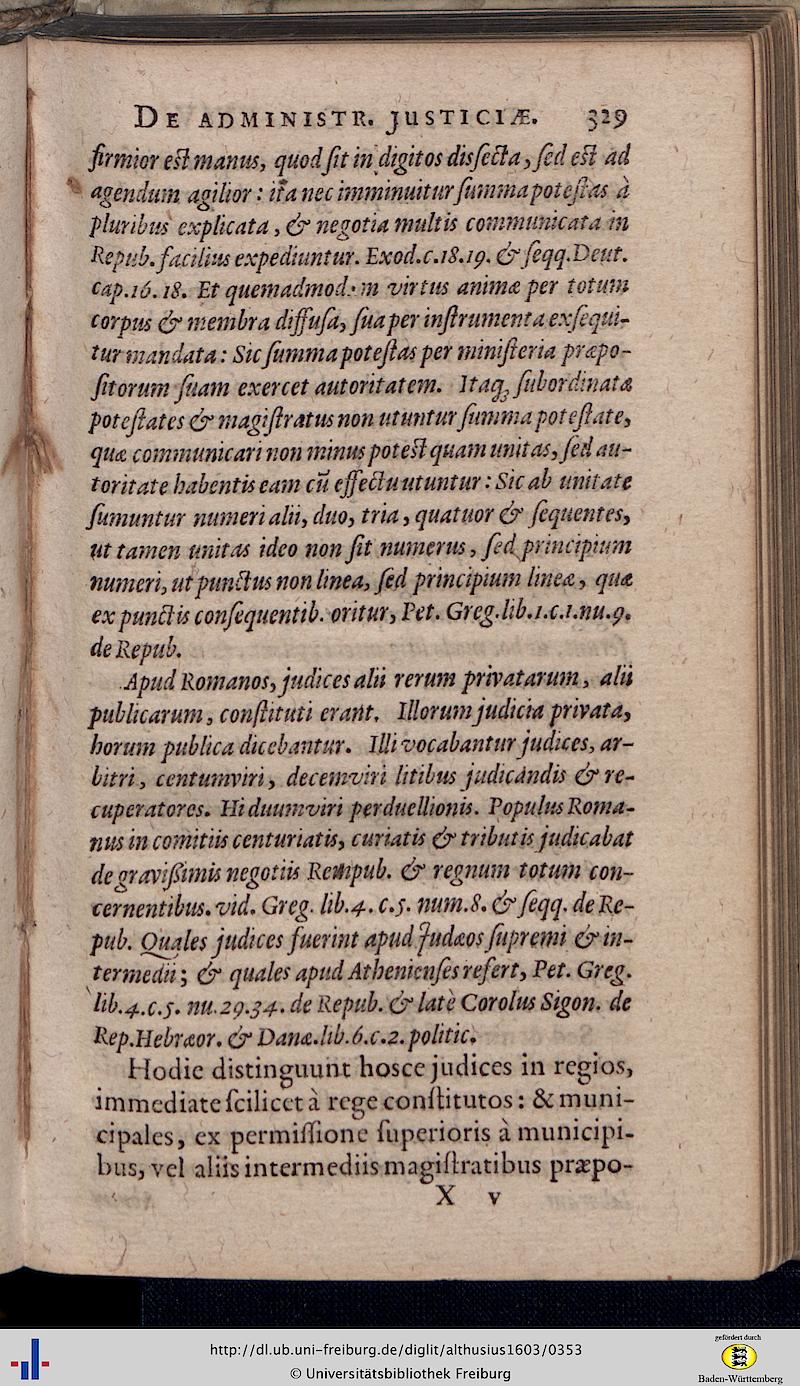 DE ADMINISTR. JUSTICIÆ. 329
firmior est manus, quod ſit in digitos diſſecta, ſed est ad
agendum agilior : ita nec imminuitur ſumma poteſtas à
pluribus explicata, & negotia multis communicata in
Repub. facilius expediuntur. Exod.c.18.19. & ſeqq. Deut.
cap.16.18. Et quemadmodum virtus animæ per totum
corpus & membra diffuſa, ſua per inſtrumenta exſequi-
tur mandata : Sic ſumma poteſtas per miniſteria præpo-
ſitorum ſuam exercet autoritatem. Itaq; ſubordinatæ
poteſtates & magiſtratus non utuntur ſumma poteſtate,
quæ communicari non minus potest quam unitas, ſed au-
toritate habentis eam cū effectu utuntur : Sic ab unitate
ſumuntur numeri alii, duo, tria, quatuor & ſequentes,
ut tamen unitas ideo non ſit numerus, ſed principium
numeri, ut punctus non linea, ſed principium lineæ, quæ
ex punctis conſequentib. oritur, Pet. Greg. lib.1.c.1.nu.9.
de Repub.
Apud Romanos, judices alii rerum privatarum, alii
publicarum, conſtituti erant. Illorum judicia privata,
horum publica dicebantur. Illi vocabantur judices, ar-
bitri, centumviri, decemviri litibus judicandis & re-
cuperatores. Hi duumviri perduellionis. Populus Roma-
nus in comitiis centuriatis, curiatis & tributis judicabat
de graviſſimis negotiis Rempub. & regnum totum con-
cernentibus. vid. Greg. lib.4. c.5. num.8. & ſeqq. de Re-
pub. Quales judices fuerint apud Judæos ſupremi & in-
termedii; & quales apud Athenienſes refert, Pet. Greg.
lib.4.c.5. nu.29.34. de Repub. & latè Corolus Sigon. de
Rep. Hebræor. & Danæ. lib.6.c.2. politic.
Hodie distinguunt hosce judices in regios,
immediate ſcilicet à rege conſtitutos : & muni-
cipales, ex permiſſione ſuperioris à municipi-
bus, vel aliis intermediis magiſtratibus præpo-
X v
http://dl.ub.uni-freiburg.de/diglit/althusius1603/0353
© Universitätsbibliothek Freiburg
gefördert durch
Baden-Württemberg